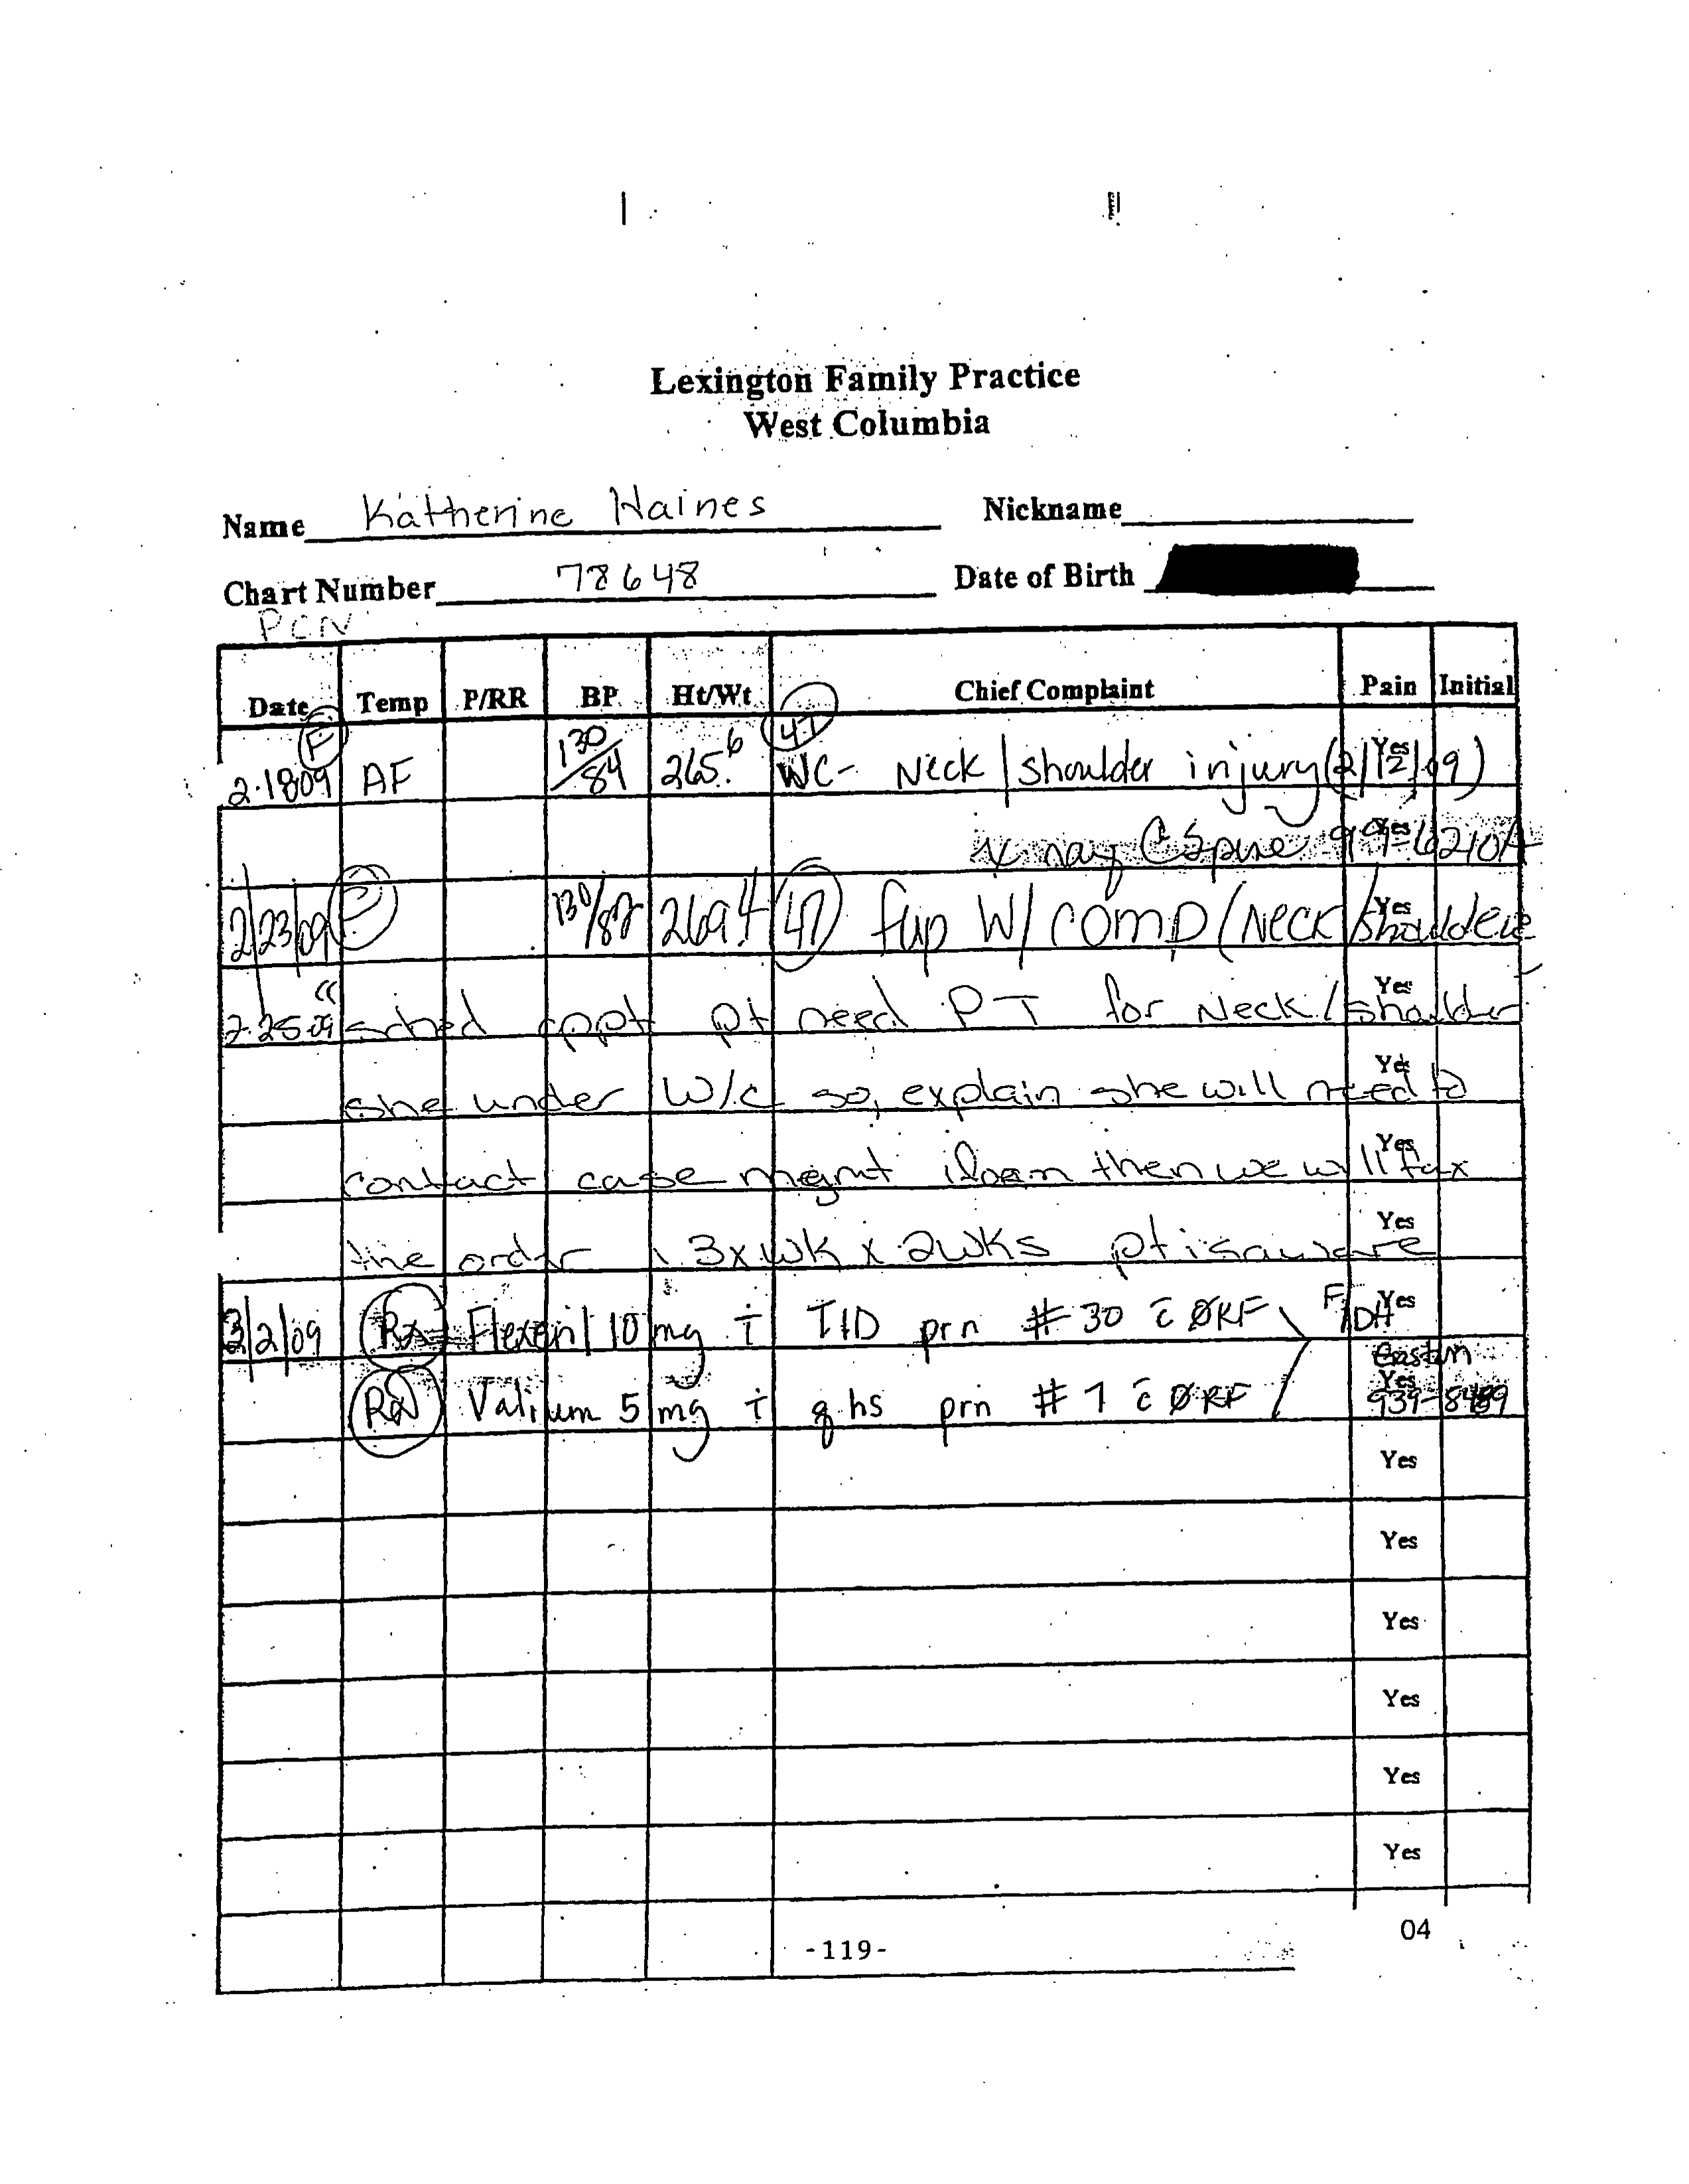 Lexington Family Practice
West Columbia
Name Katherine Haines Nickname
Chart Number 78648 Date of Birth
PCN
Date Temp P/RR BP Ht/Wt Chief Complaint Pain Initial
2.1809 F AF 130/84 265.6 47 WC- Neck/shoulder injury (2/12/09) Yes
x-ray CSpine Yes
2/23/09 F 130/82 269.4 47 fup W/comp (Neck/shoulder Yes
2.25.09 " sched appt pt need PT for Neck/shoulder Yes
she under W/c so, explain she will need to Yes
contact case mgmt then we will fax Yes
the order 3xwk x 2wks pt is aware Yes
3/2/09 Rx Flexeril 10 mg T TID prn #30 c ØRF F/DH Yes
Rx Valium 5 mg T q hs prn #7 c ØRF Yes
Yes
Yes
Yes
Yes
Yes
Yes
04
-119-